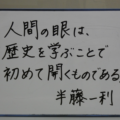 人間の眼は、
歴史を学ぶことで
初めて開くものである。
半藤一利